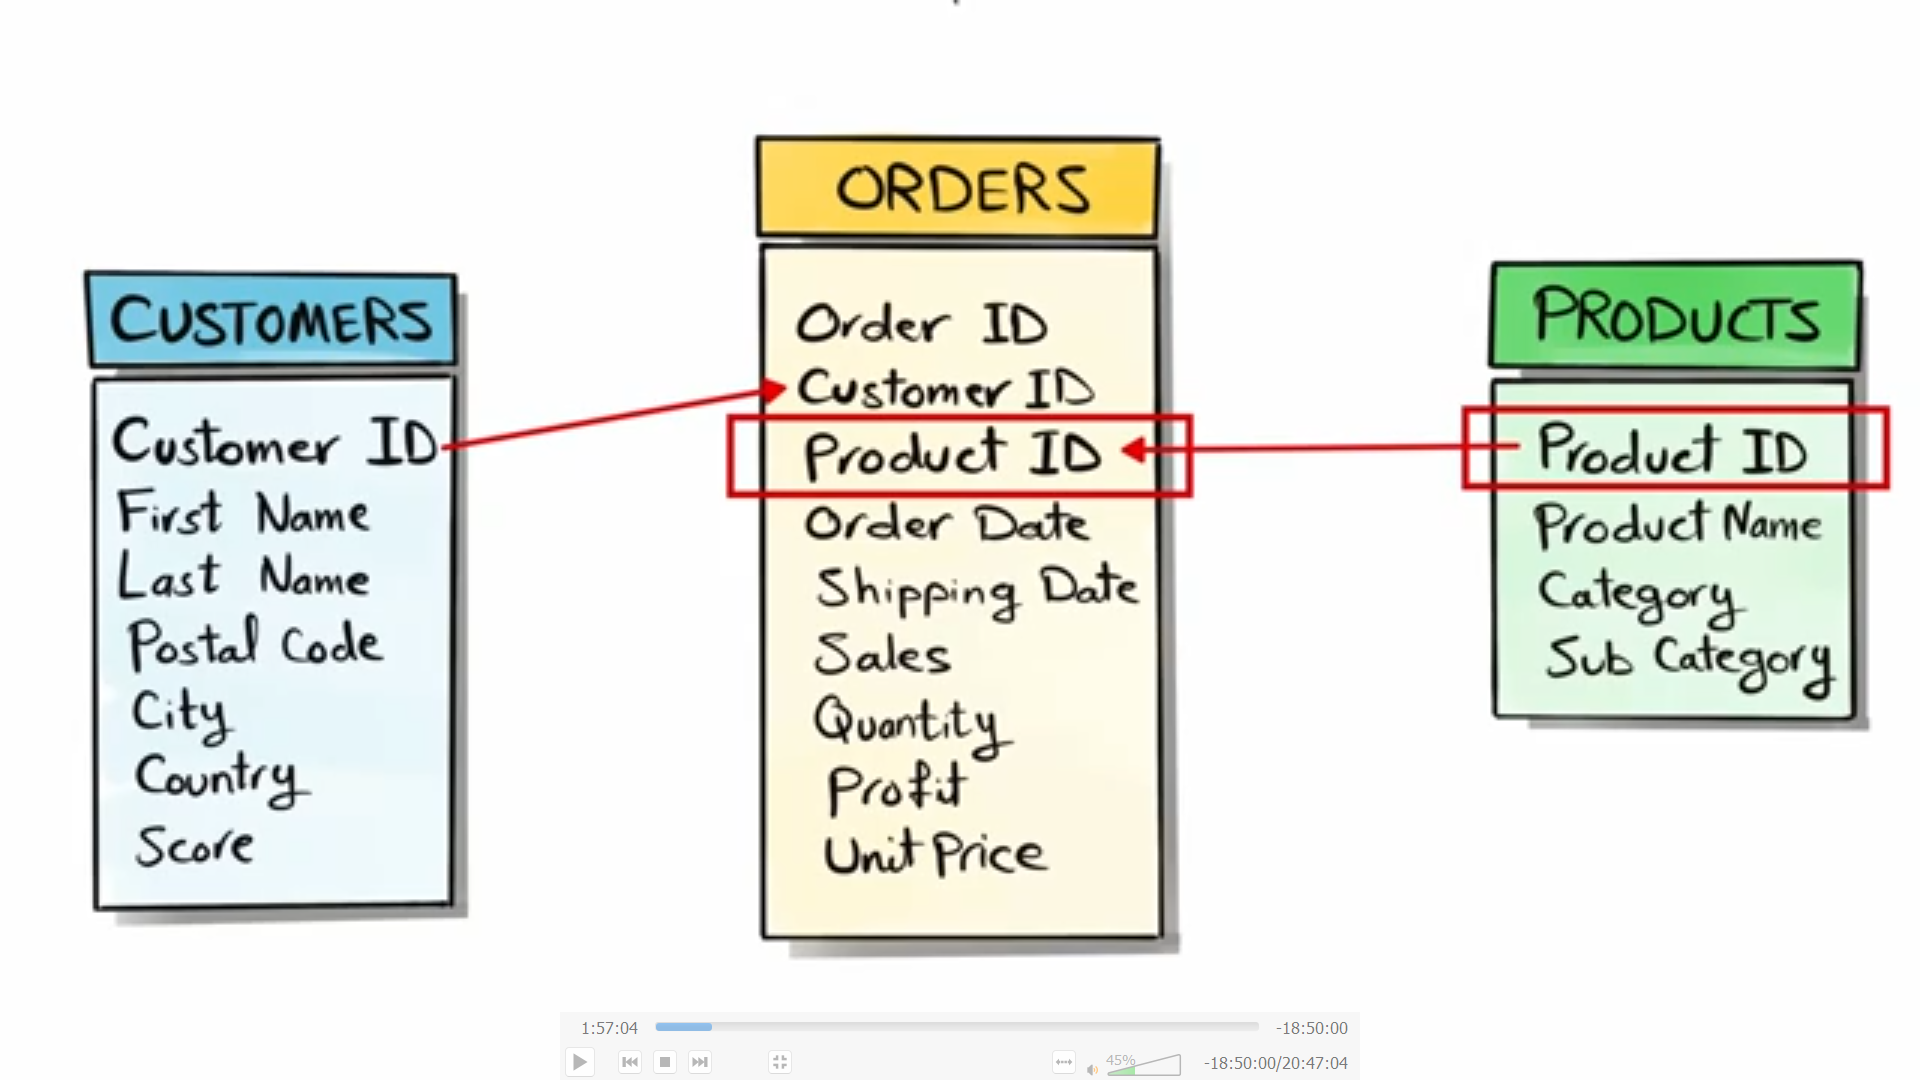 CUSTOMERS
Customer ID
First Name
Last Name
Postal Code
City
Country
Score
ORDERS
Order ID
Customer ID
Product ID
Order Date
Shipping Date
Sales
Quantity
Profit
Unit Price
PRODUCTS
Product ID
Product Name
Category
Sub Category
1:57:04
-18:50:00
45%
-18:50:00/20:47:04